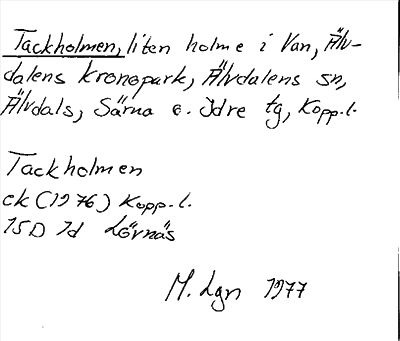 Tackholmen, liten holme i Van, Älv-
dalens kronopark, Älvdalens sn,
Älvdals, Särna o. Idre tg, Kopp.l.
Tackholmen
ek (1976) Kopp.l.
15D 1d Lövnäs
M. Lgn 1977